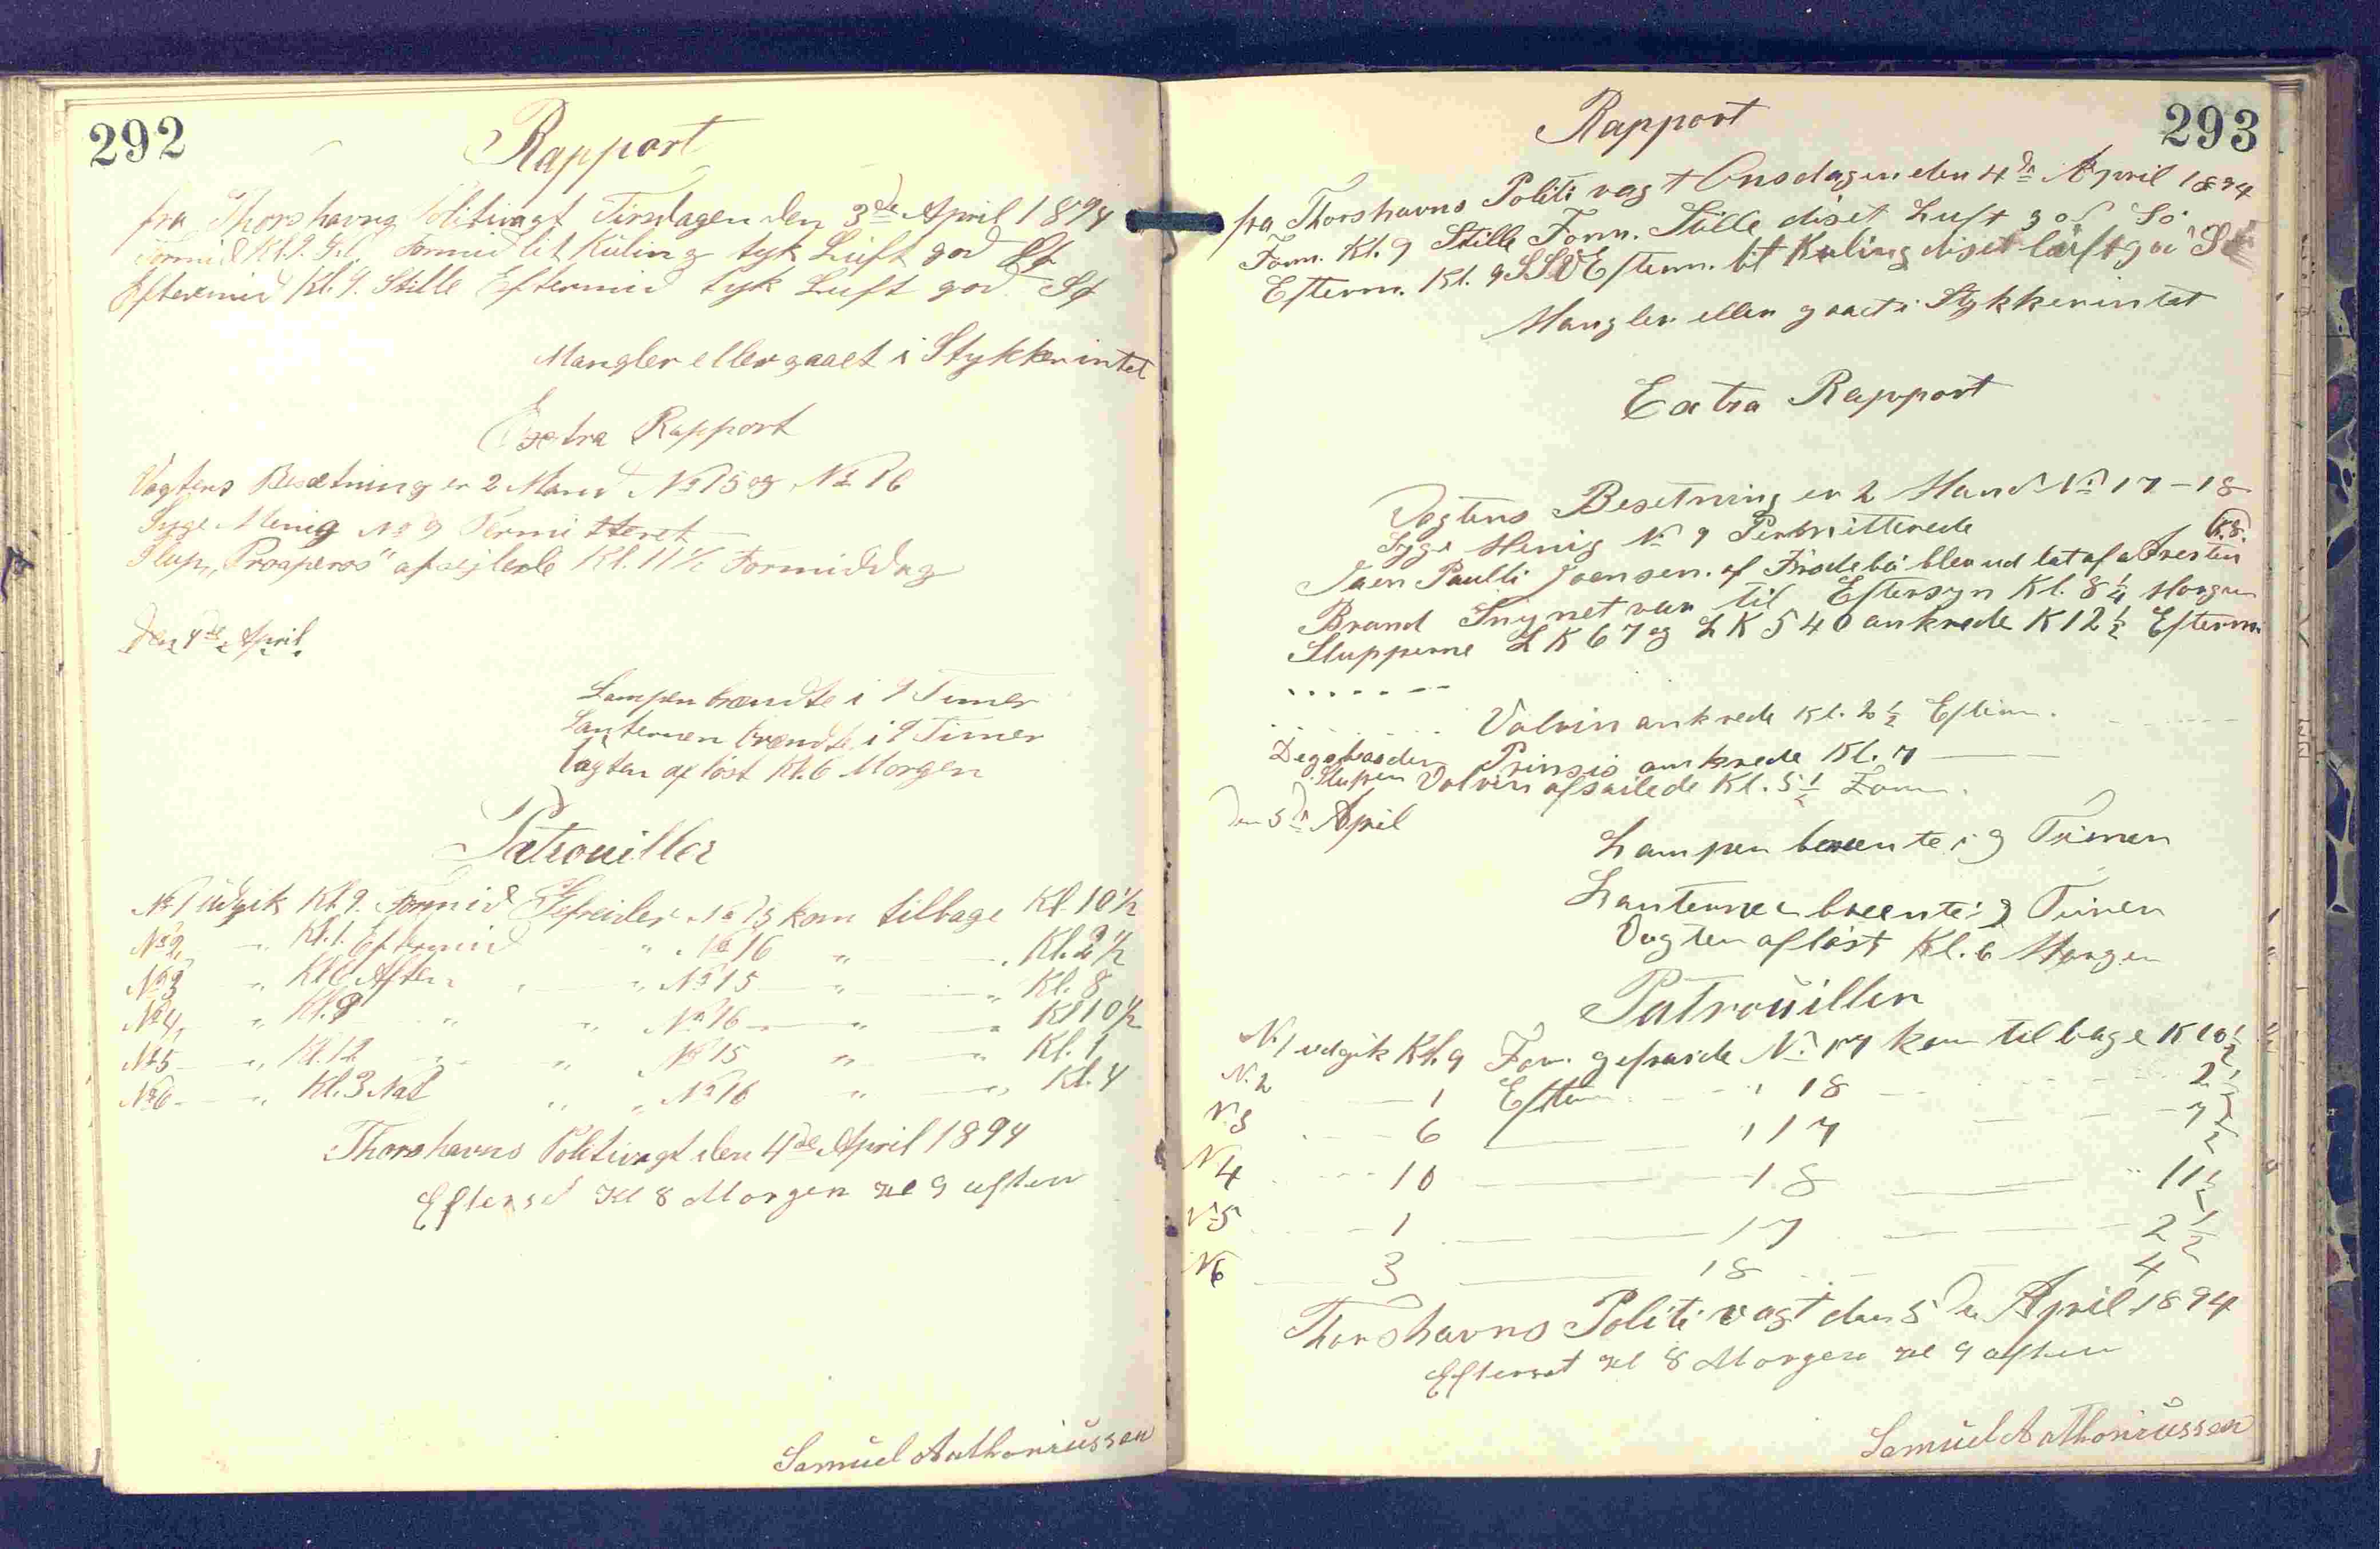 292
Rapport
fra Thorshavns Politivagt Tirsdagen den 3de April 1894
Formid Kl. 9. Formid lit Kuling tyk Luft god Sø
Eftermid Kl. 9. Stille Eftermid tyk Luft god Sø
Mangler eller gaaet i Stykker intet
Extra Rapport
Vagtens Besætning er 2 Mand No 15 og No 16
Syge Menig No 9 Permitteret
Slup „Prosperos" afsejlede Kl. 11½ Formiddag
Den 4de April.
Lampen brændte i 9 Timer
Lanternen brændte i 9 Timer
Vagten afløst Kl. 6 Morgen
Patrouiller
No 1 udgik Kl. 9. Formid Gefreider No 15 kom tilbage Kl. 10½
No 2, „ Kl. 1. Eftermid „ No 16 „ „ Kl. 2½
No 3 „ Kl. 6 Aften „ „ No 15 „ „ Kl. 8
No 4, „ Kl. 9 „ „ No 16 „ „ Kl 10½
No 5 „ Kl. 12 „ „ No 15 „ „ Kl. 1
No 6 „ Kl. 3 Nat „ „ No 16 „ „ Kl. 4
Thorshavns Politivagt den 4de April 1894
Efterset Kl 8 Morgen Kl 9 aften
Samuel Anthoniussen
293
Rapport
fra Thorshavns Politi vagt Onsdagen den 4de April 1894
Form. Kl. 9 Stille Form. Stille diset Luft god Sö
Efterm. Kl. 9 SSV Efterm. lit Kuling diset luft god Sö
Mangler eller gaaet i Stykker intet
Extra Rapport
Vagtens Besetning er 2 Mand No 17-18
Syge Menig No 9 Permitterede
Joen Paulli Joensen. af blev ud lat af aAresten Kl. 8.
Brand var til Eftersyn Kl. 8¼ Morgen
Slupperne LK 67 og LK 540 ankrede K 12½ Efterm.
Valvin ankrede Kl. 2½ Efterm.
Prinsis ankrede Kl. 7
Slupen Valvin afsailede Kl. 5½ Form.
Den 5de April
Lampen brente i 9 Timer
Lanternen brente i 9 Timer
Vagten aflöst Kl. 6 Morgen
Patrouiller
No. 1 udgik Kl. 9 For. No 17 kom tilbage K 10½
N. 2 1 Efterm. 18 2½
N. 3 6 17 7½
N 4 10 18 11½
N 5 1 17 2½
N 6 3 18 4
Thorshavns Politi vagt den 5de April 1894
Efterset Kl 8 Morgen Kl 9 aften
Samuel Anthoniussen